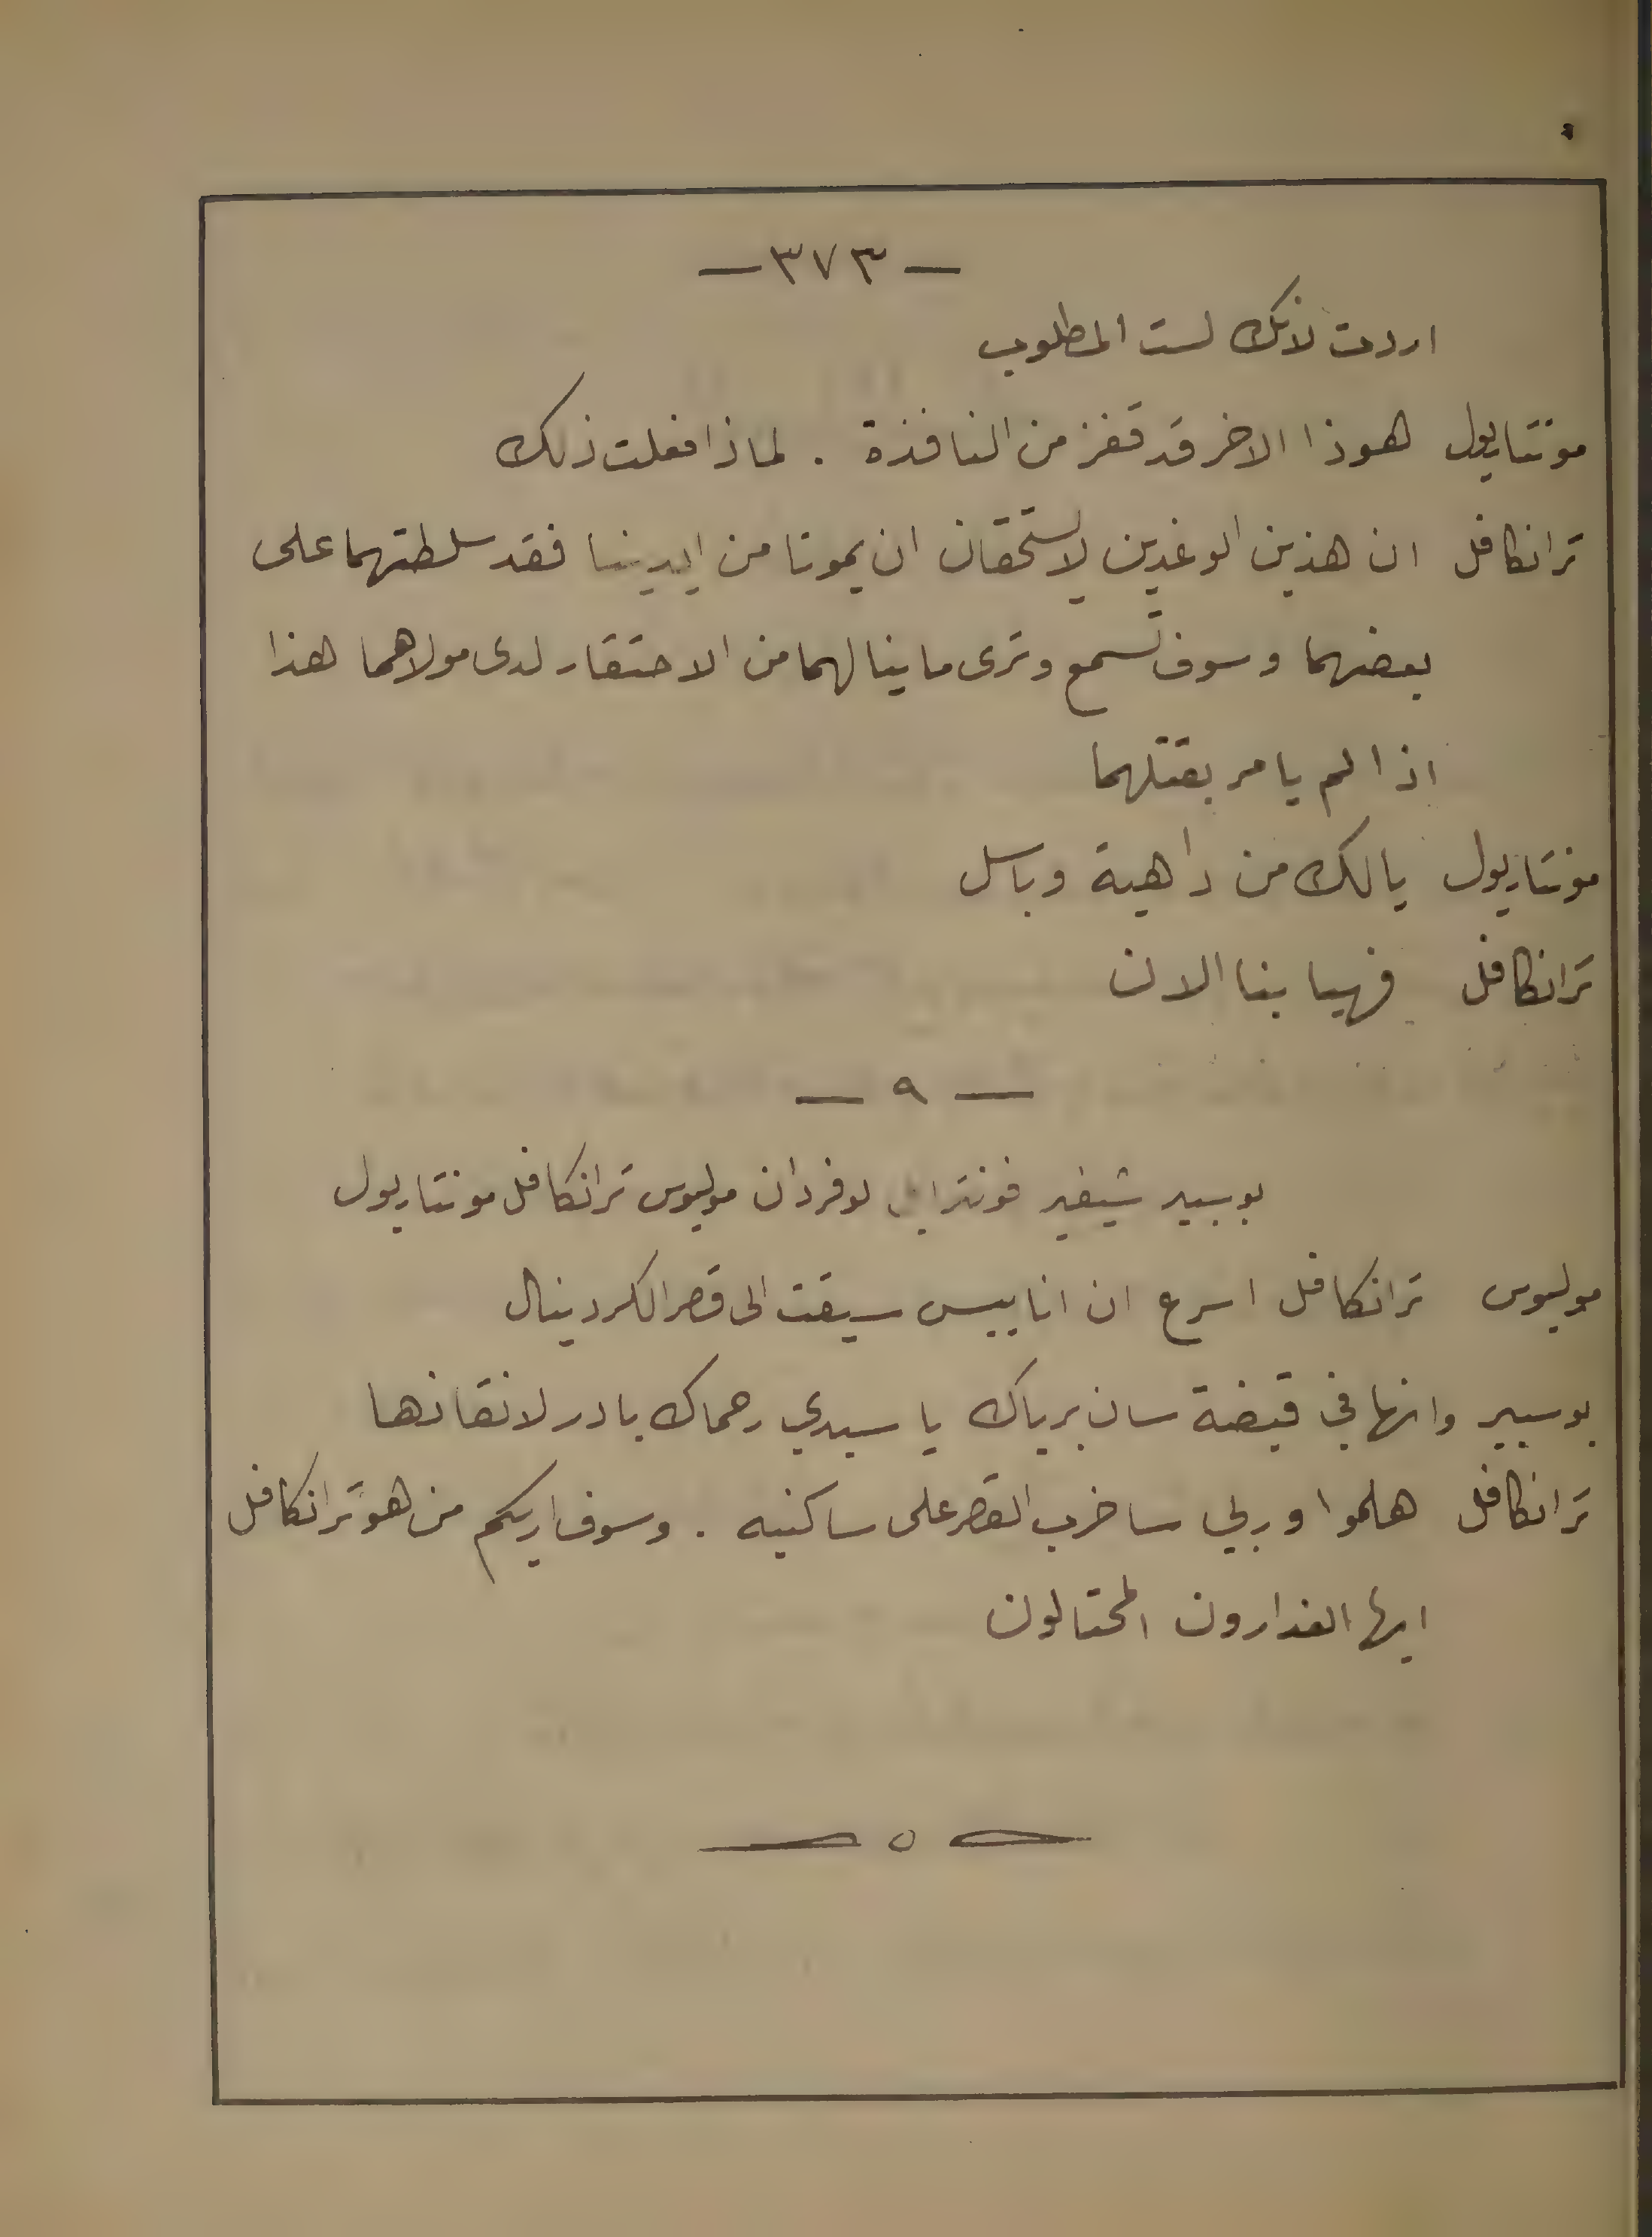 —٣٧٣—
اردت لانك لست المطلوب
مونتاريول هوذا الاخر قد قفز من النافذة . لماذا فعلت ذلك
ترانكافل ان هذين الوغدين لايستحقان ان يموتا من ايدينا فقد سلطتهما على
بعضهما وسوف تسمع وترى ما ينالهما من الاحتقار لدى مولاهما هذا
اذا لم يامر بقتلهما
مونتاريول يالك من داهية وباسل
ترانكافل فهيا بنا الان
— ٩ —
بوسيير شيفير فونترايل لوفردان موليوس ترانكافل مونتاريول
موليوس ترانكافل اسرع ان اناييس سيقت الى قصر الكردينال
بوسيير وانها في قبضة سان برياك يا سيدي رحماك بادر لانقاذها
ترانكافل هلموا وربي ساخرب القصر على ساكنيه . وسوف اريكم من هو ترانكافل
ايها الغدارون المحتالون